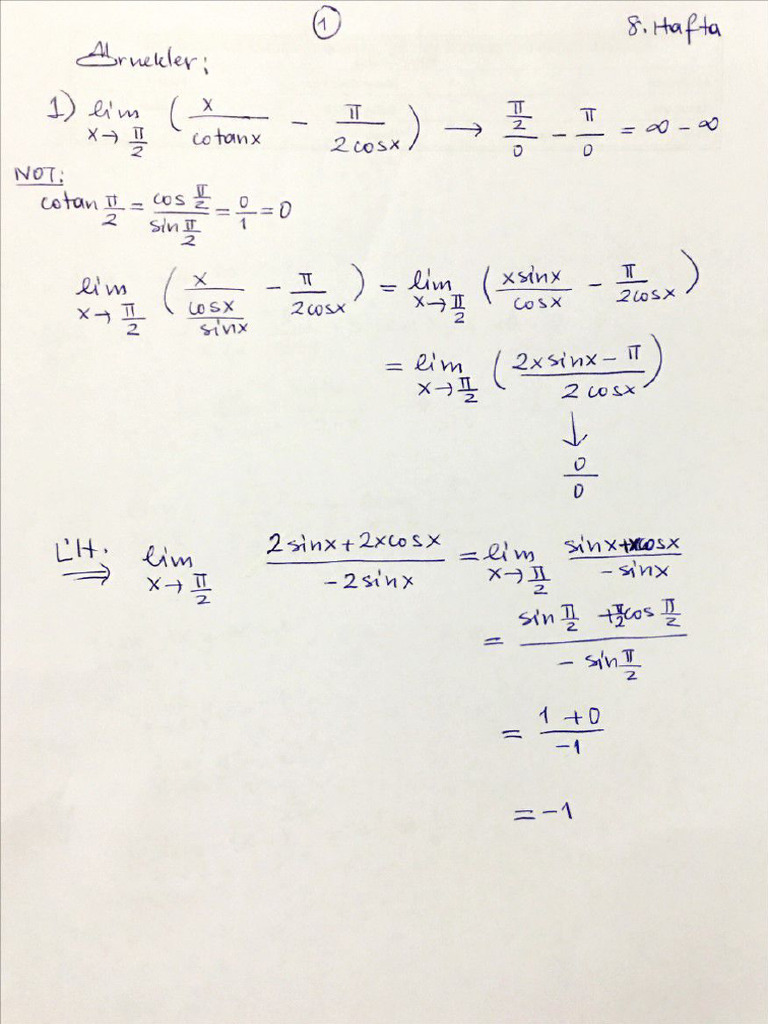 1
8. Hafta
Örnekler;
1) lim x→π/2 (x/cotanx − π/2cosx) → (π/2)/0 − π/0 = ∞ − ∞
NOT:
cotan π/2 = cos π/2 / sin π/2 = 0/1 = 0
lim x→π/2 (x/(cosx/sinx) − π/2cosx) = lim x→π/2 (xsinx/cosx − π/2cosx)
= lim x→π/2 ((2xsinx − π)/2cosx)
↓
0/0
L'H. ⇒ lim x→π/2 (2sinx + 2xcosx)/(−2sinx) = lim x→π/2 (sinx + xcosx)/(−sinx)
= (sin π/2 + π/2 cos π/2)/(− sin π/2)
= (1 + 0)/(−1)
= −1